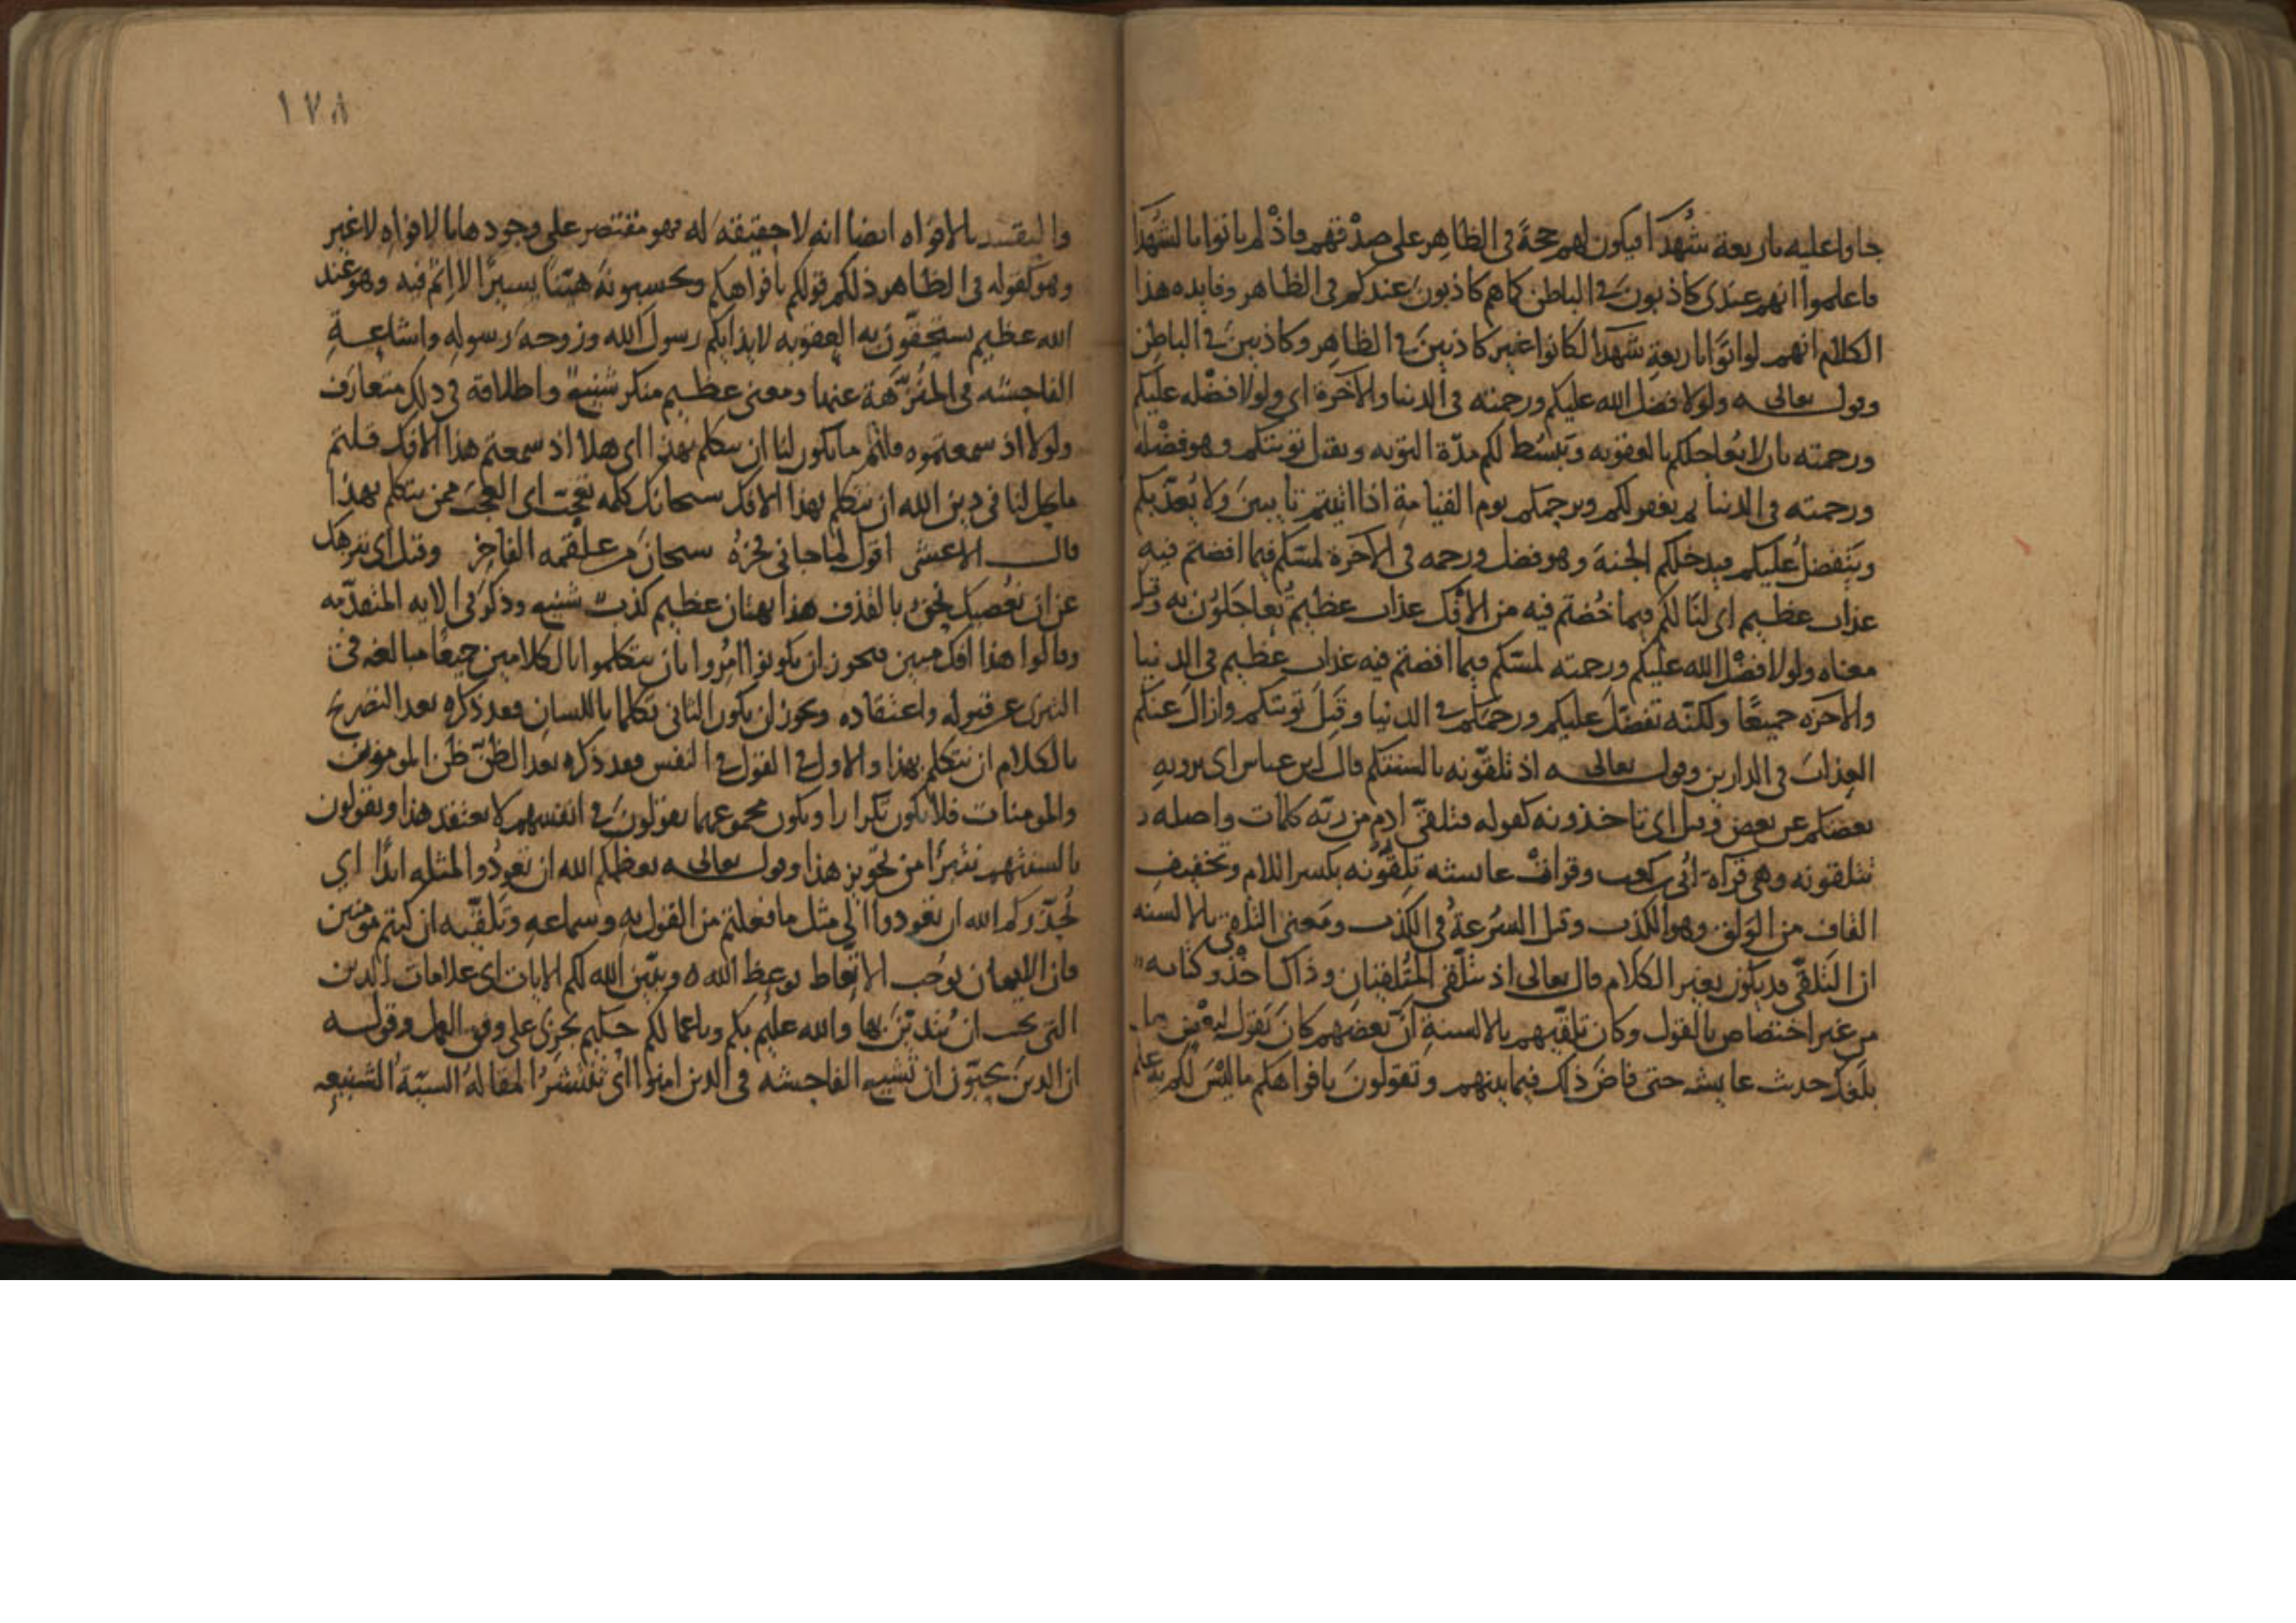 جاوا عليه باربعة شهدا فيكون لهم حجة في الظاهر على صدقهم فاذ لم ياتوا بالشهدا
فاعلموا انهم عندي كاذبون في الباطن كما هم كاذبون عندكم في الظاهر وفايده هذا
الكلام انهم لو اتوا باربعة شهدا لكانوا غير كاذبين في الظاهر وكاذبين في الباطن
وقوله تعالى ولولا فضل الله عليكم ورحمته في الدنيا والآخرة اي ولولا فضله عليكم
ورحمته بان لا يعاجلكم بالعقوبه ويبسط لكم مدة التوبه ويقبل توبتكم وهو فضله
ورحمته في الدنيا ثم يغفر لكم ويرحمكم يوم القيامة اذا اتيتم تايبين ولا يعذبكم
ويتفضل عليكم فيدخلكم الجنة وهو فضل ورحمه في الآخرة لمسكم فيما افضتم فيه
عذاب عظيم اي لنالكم فيما خضتم فيه من الافك عذاب عظيم تعاجلون به وقيل
معناه ولولا فضل الله عليكم ورحمته لمسكم فيما افضتم فيه عذاب عظيم في الدنيا
والآخره جميعًا ولكنه تفضل عليكم ورحمكم في الدنيا وقبل توبتكم وازال عنكم
العذاب في الدارين وقوله تعالى اذ تلقونه بالسنتكم قال ابن عباس اي يرويه
بعضكم عن بعض وقيل اي تاخذونه كقوله فتلقى ادم من ربه كلمات واصله
تتلقونه وهي قراة ابي بن كعب وقرات عايشه تلقونه بكسر اللام وتخفيف
القاف من الولق وهو الكذب وقيل السرعة في الكذب ومعنى التلقي بالالسنه
ان التلقي قد يكون بغير الكلام قال تعالى اذ تلقى المتلقيان وذاك اخذ وكتابه
من غير اختصاص بالقول وكان تلقيهم بالالسنة ان بعضهم كان يقول لبعض ما
بلغك حديث عايشه حتى فاض ذلك فيما بينهم وتقولون بافواهكم ما ليس لكم به علم
والتقييد بالافواه ايضا انه لا حقيقة له فهو مقتصر على وجودها بالافواه لا غير
وهو كقوله في الظاهر ذلكم قولكم بافواهكم وتحسبونه هينا يسيرًا لا اثم فيه وهو عند
الله عظيم تستحقون به العقوبه لايذايكم رسول الله وزوجة رسوله واشاعة
الفاحشه في المنزهة عنها ومعنى عظيم منكر شنيع واطلاقه في ذلك متعارف
ولولا اذ سمعتموه قلتم ما يكون لنا ان نتكلم بهذا اي هلا اذ سمعتم هذا الافك قلتم
ما يحل لنا في دين الله ان نتكلم بهذا الافك سبحانك كلمه تعجب اي العجب ممن يتكلم بهذا
قال الاعشى اقول لما جاني فخره سبحان من علقمه الفاخر وقيل اي نزهك
عن ان نعصيك نحن بالقذف هذا بهتان عظيم كذب شنيع وذكر في الايه المتقدمه
وقالوا هذا افك مبين فيجوز ان يكونوا امروا بان يتكلموا بالكلامين جميعًا مبالغه في
التبري عن قبوله واعتقاده ويجوز ان يكون الثاني تكلما باللسان فقد ذكره بعد التصريح
بالكلام ان نتكلم بهذا والاول في القول في النفس فقد ذكره بعد الظن ظن المومنون
والمومنات فلا يكون تكرارا ويكون مجموعهما يقولون في انفسهم لا نعتقد هذا ويقولون
بالسنتهم تبترا من تجويز هذا وقوله تعالى يعظكم الله ان تعودوا لمثله ابدًا اي
يحذركم الله ان تعودوا الى مثل ما فعلتم من القول به وسماعه وتلقيه ان كنتم مومنين
فان الايمان يوجب الاتعاظ بوعظ الله ويبين الله لكم الايات اي علامات الدين
التي يجب ان يتدين بها والله عليم بكم وباعمالكم حكيم يجزي على وفق العمل وقوله
ان الذين يحبون ان تشيع الفاحشه في الذين امنوا اي تنتشر المقالة السيئة الشنيعه
١٧٨